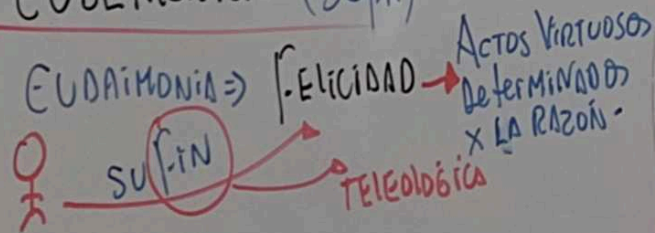 EUDAIMONIA => FELICIDAD → ACTOS VIRTUOSOS
DeterMINADOS
X LA RAZÓN.
SU FIN
TELEOLÓGICA